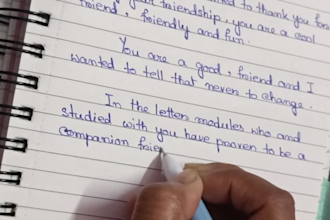 to thank you for
your friendship, you are a cool
friend, friendly and fun.
You are a good, friend and I
wanted to tell that never to change.
In the letters modules who and
studied with you have proven to be a
companion frie